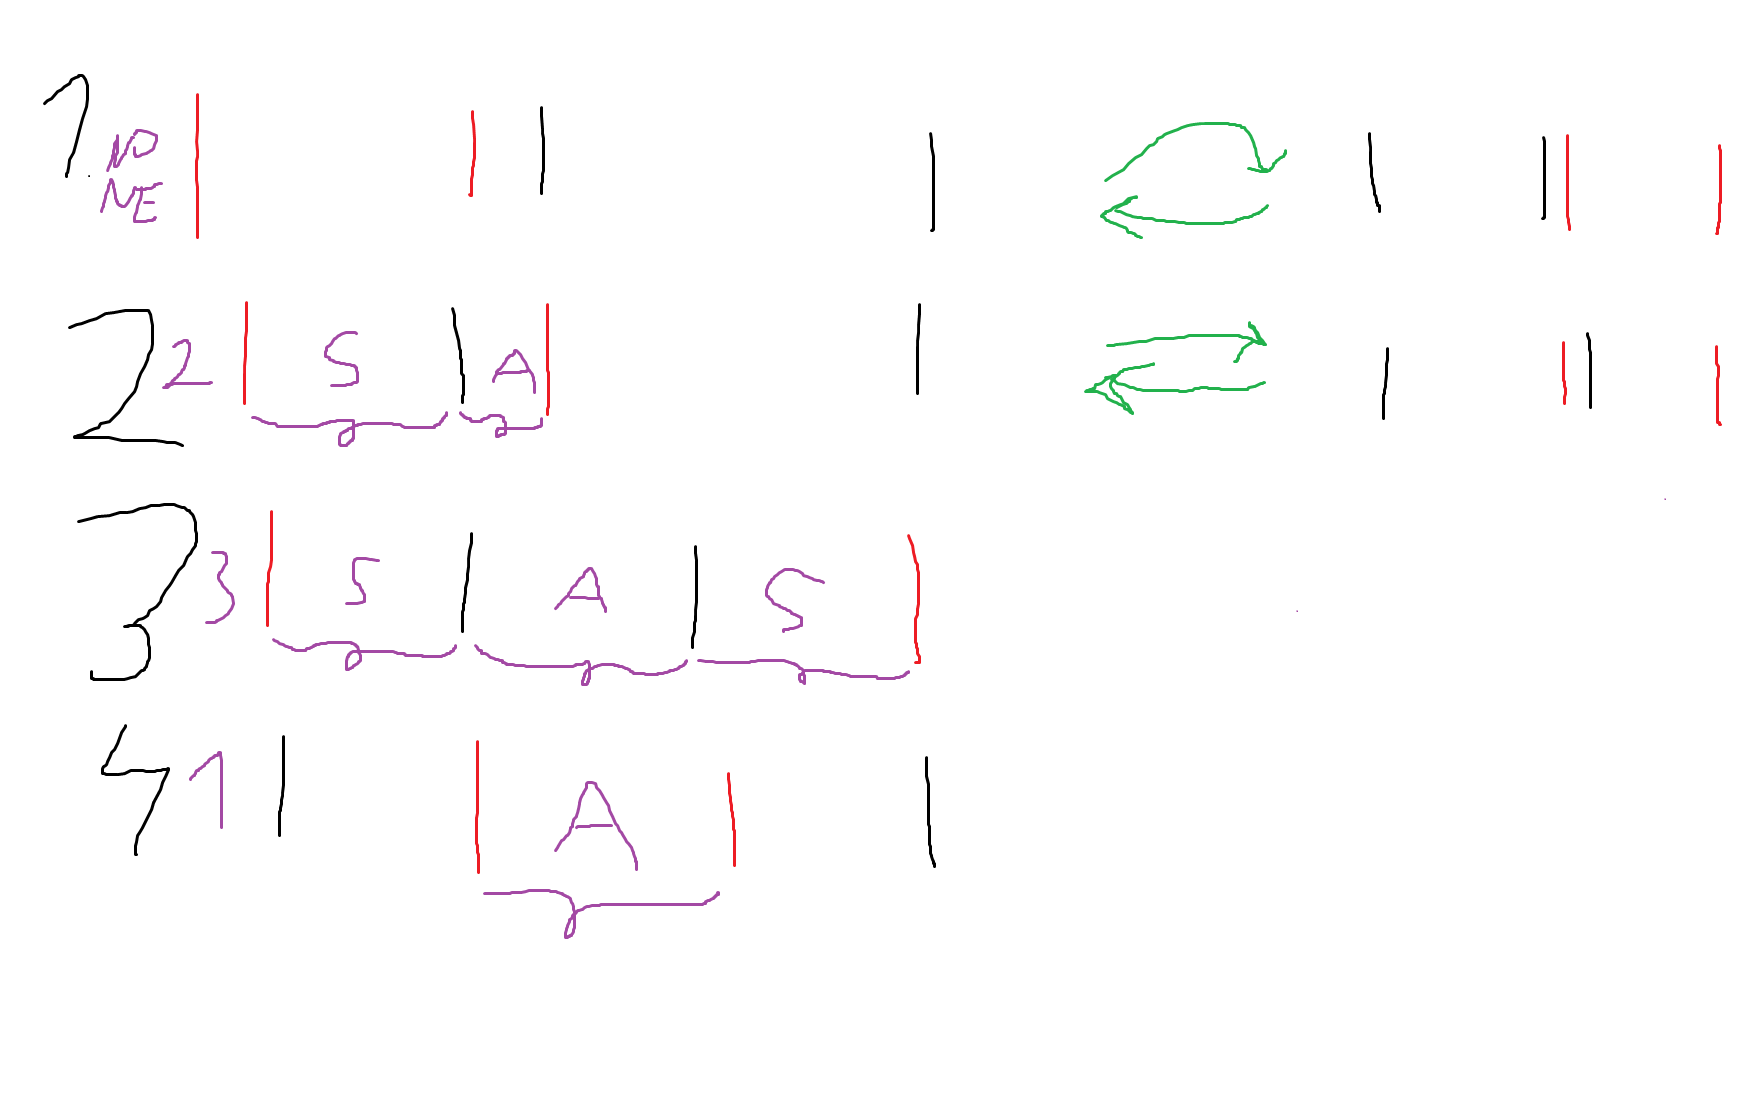 1 NO
NE
2 2 S A
3 3 S A S
4 1 A